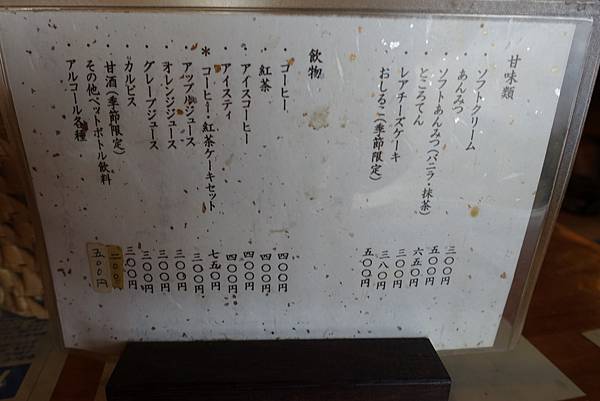 甘味類
・ソフトクリーム 三〇〇円
・あんみつ 五〇〇円
・ソフトあんみつ(バニラ・抹茶) 六五〇円
・ところてん 三〇〇円
・レアチーズケーキ 三八〇円
・おしるこ(季節限定) 五〇〇円
飲物
・コーヒー 四〇〇円
・紅茶 四〇〇円
・アイスコーヒー 四〇〇円
・アイスティ 四〇〇円
*コーヒー・紅茶ケーキセット 七五〇円
・アップルジュース 三〇〇円
・オレンジジュース 三〇〇円
・グレープジュース 三〇〇円
・カルピス 三〇〇円
・甘酒(季節限定) 三〇〇円
・その他ペットボトル飲料 二〇〇
・アルコール各種 五〇〇円